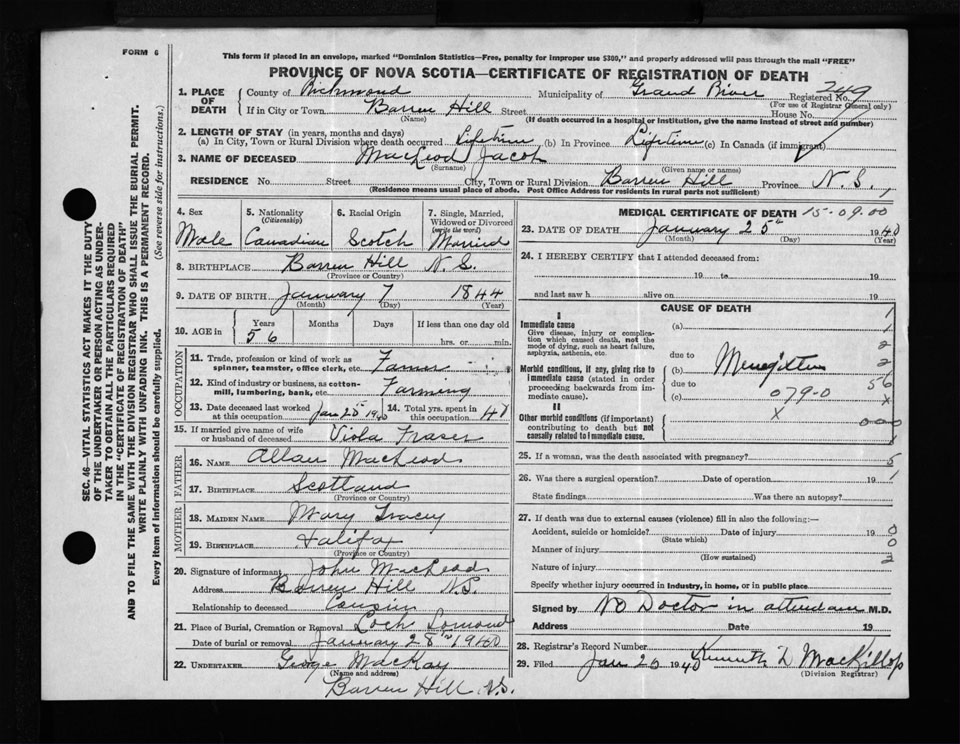 FORM 6
This form if placed in an envelope, marked "Dominion Statistics—Free, penalty for improper use $300," and properly addressed will pass through the mail "FREE"
PROVINCE OF NOVA SCOTIA—CERTIFICATE OF REGISTRATION OF DEATH
1. PLACE OF DEATH County of Richmond Municipality of Grand River Registered No. 749
(For use of Registrar General only)
If in City or Town Barren Hill Street House No.
(Name) (If death occurred in a hospital or institution, give the name instead of street and number)
2. LENGTH OF STAY (in years, months and days)
(a) In City, Town or Rural Division where death occurred Lifetime (b) In Province Lifetime (c) In Canada (if immigrant)
3. NAME OF DECEASED MacLeod Jacob
(Surname) (Given name or names)
RESIDENCE No. Street City, Town or Rural Division Barren Hill Province N.S.
(Residence means usual place of abode. Post Office Address for residents in rural parts not sufficient)
4. Sex Male
5. Nationality (Citizenship) Canadian
6. Racial Origin Scotch
7. Single, Married, Widowed or Divorced (write the word) Married
8. BIRTHPLACE Barren Hill N.S.
(Province or Country)
9. DATE OF BIRTH January 7 1844
(Month) (Day) (Year)
10. AGE in Years Months Days If less than one day old
56 hrs. or min.
OCCUPATION
11. Trade, profession or kind of work as spinner, teamster, office clerk, etc. Farmer
12. Kind of industry or business, as cotton-mill, lumbering, bank, etc. Farming
13. Date deceased last worked at this occupation Jan 1940 14. Total yrs. spent in this occupation 40
15. If married give name of wife or husband of deceased Viola Fraser
FATHER
16. NAME Allan MacLeod
17. BIRTHPLACE Scotland
(Province or Country)
MOTHER
18. MAIDEN NAME Mary Tracey
19. BIRTHPLACE Halifax
(Province or Country)
20. Signature of informant John MacLeod
Address Barren Hill N.S.
Relationship to deceased Cousin
21. Place of Burial, Cremation or Removal Loch Lomond
Date of burial or removal January 28th 1940
22. UNDERTAKER George MacKay
(Name and address)
Barren Hill N.S.
MEDICAL CERTIFICATE OF DEATH 15-09.00
23. DATE OF DEATH January 25th 1940
(Month) (Day) (Year)
24. I HEREBY CERTIFY that I attended deceased from:
19 to 19
and last saw h alive on 19
CAUSE OF DEATH
I
Immediate cause
Give disease, injury or complication which caused death, not the mode of dying, such as heart failure, asphyxia, asthenia, etc.
(a) 1
1
2
due to
Morbid conditions, if any, giving rise to immediate cause (stated in order proceeding backwards from immediate cause).
(b) 2
due to 56
(c) 079-0 X
II X
Other morbid conditions (if important) contributing to death but not causally related to immediate cause.
000
25. If a woman, was the death associated with pregnancy? 5
26. Was there a surgical operation? Date of operation 19 1
State findings Was there an autopsy?
27. If death was due to external causes (violence) fill in also the following:—
Accident, suicide or homicide? Date of injury 19 0
(State which)
Manner of injury 0
(How sustained)
Nature of injury 2
Specify whether injury occurred in industry, in home, or in public place
Signed by No Doctor in attendance M.D.
Address Date 19
28. Registrar's Record Number
29. Filed Jan 26 1940 Kenneth D MacKillop
(Division Registrar)
SEC. 46—VITAL STATISTICS ACT MAKES IT THE DUTY
OF THE UNDERTAKER OR PERSON ACTING AS UNDER-
TAKER TO OBTAIN ALL THE PARTICULARS REQUIRED
IN THE "CERTIFICATE OF REGISTRATION OF DEATH"
AND TO FILE THE SAME WITH THE DIVISION REGISTRAR WHO SHALL ISSUE THE BURIAL PERMIT.
WRITE PLAINLY WITH UNFADING INK. THIS IS A PERMANENT RECORD.
Every item of information should be carefully supplied. (See reverse side for instructions.)